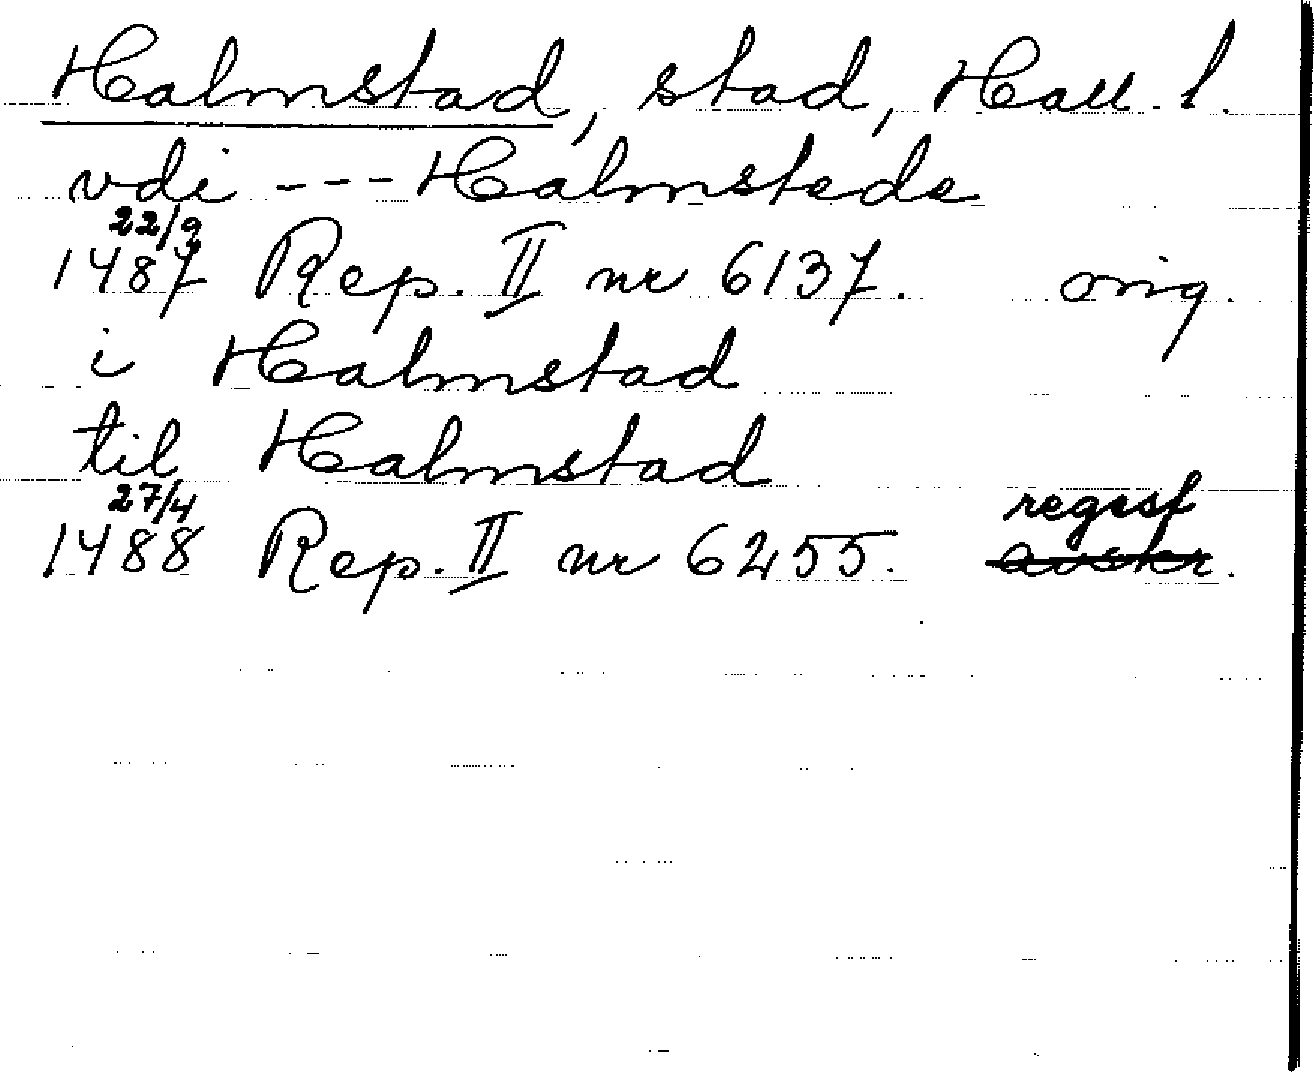 Halmstad, stad, Hall. l.
vdi --- Halmstede
22/9
1487 Rep. II nr 6137. orig.
i Halmstad
til Halmstad
27/4 regest
1488 Rep. II nr 6255. avskr.